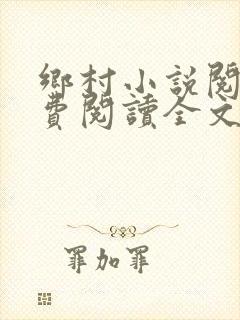 鄉村小說閱
費閱讀全文
罪加罪